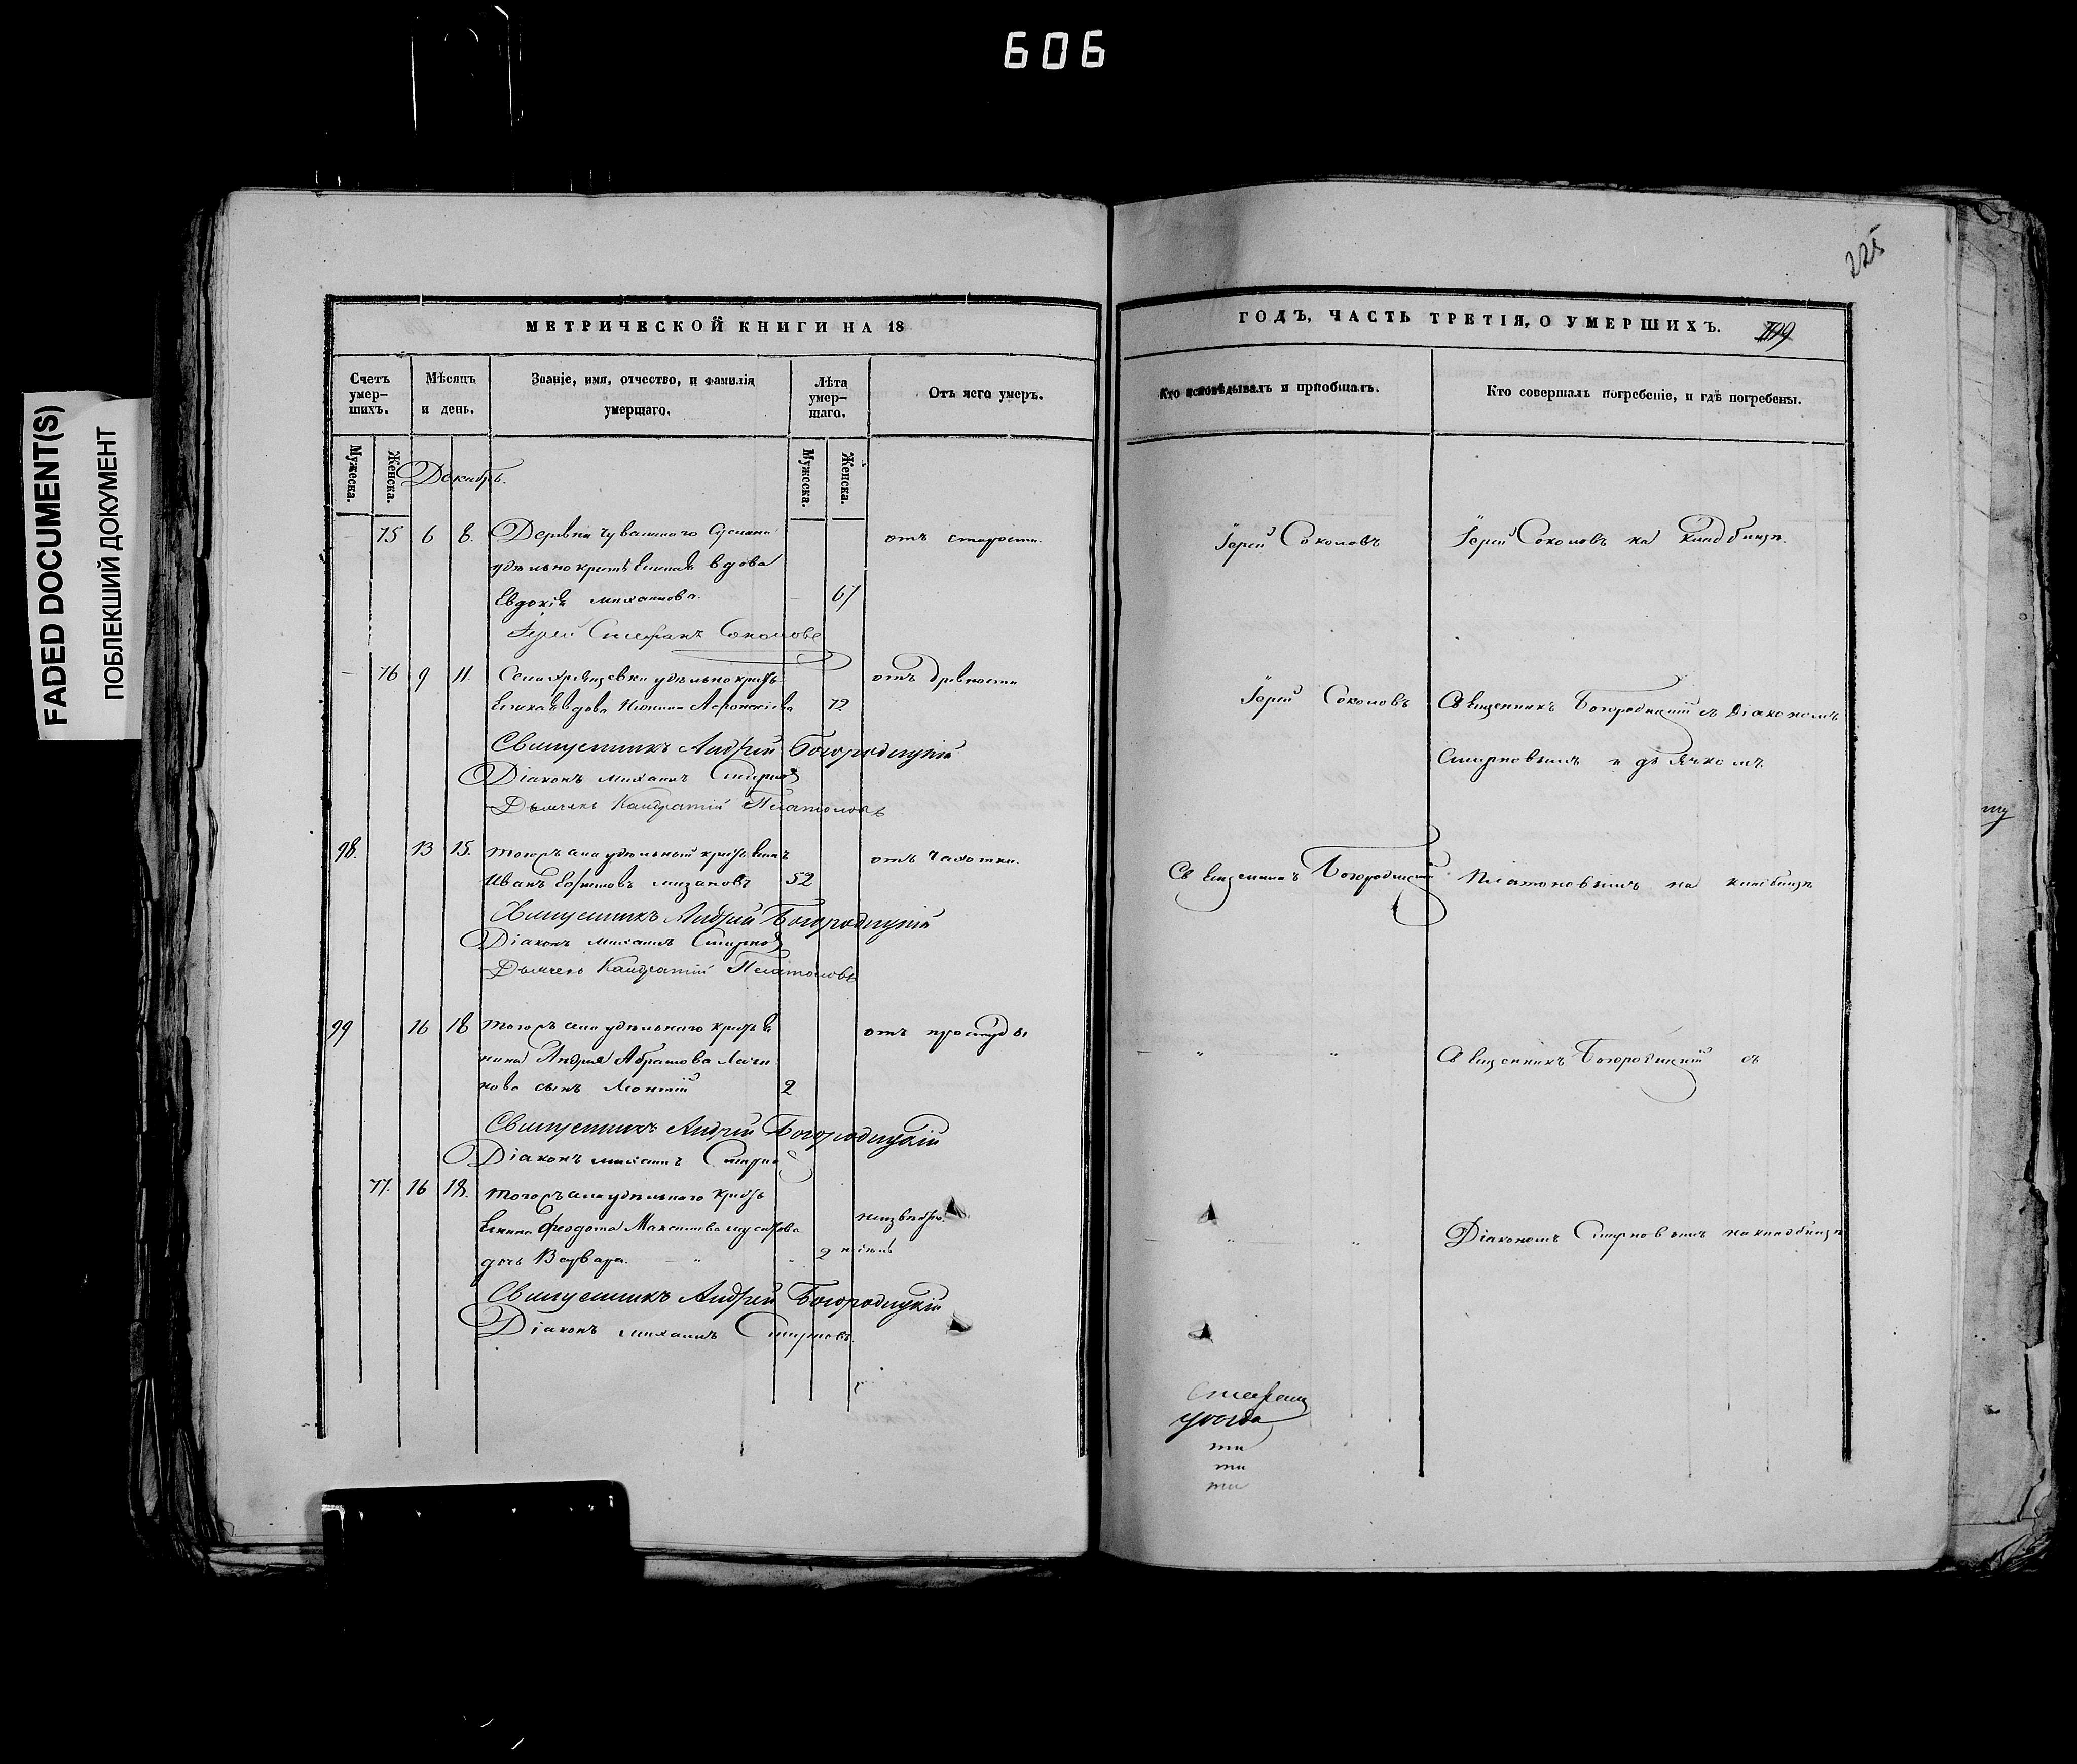 606
FADED DOCUMENT(S)
ПОБЛЕКШИЙ ДОКУМЕНТ
225
МЕТРИЧЕСКОЙ КНИГИ НА 18
Счетъ умерших. Мѣсяцъ и день. Званіе, имя, отчество, и фамилія умершаго. Лѣта умершаго. Отъ чего умеръ.
Мужеска. Женска. Мужеска. Женска.
Декабрь.
75 6 8. Деревни Чувашскаго
удѣльно крестьянская вдова
Евдокія Михайлова. 67
отъ старости.
Іерей Стефанъ Соколовъ
76 9 11. Села удѣльно кресть
вдова 72
отъ древности
Священникъ Андрей Богородицкій
Діаконъ Михаилъ Смирновъ
Дьячекъ Кондратій Платоновъ
98. 13 15. тогожъ села удѣльный крестьянинъ
Иванъ 52
отъ чахотки.
Священникъ Андрей Богородицкій
Діаконъ Михаилъ Смирновъ
Дьячекъ Кондратій Платоновъ
99 16 18 тогожъ села удѣльнаго кресть
нина Андрея Абрамова
нова сынъ Леонтій 2
отъ простуды
Священникъ Андрей Богородицкій
Діаконъ Михаилъ Смирнов
77. 16 18. тогожъ села удѣльнаго кресть
янина Феодота
дочь Варвара. 2
Священникъ Андрей Богородицкій
Діаконъ Михаилъ Смирновъ.
ГОДЪ, ЧАСТЬ ТРЕТІЯ, О УМЕРШИХЪ. 199
Кто исповѣдывалъ и пріобщалъ. Кто совершалъ погребеніе, и гдѣ погребены.
Іерей Соколовъ Іерей Соколовъ на кладбищѣ.
Іерей Соколовъ Священникъ Богородицкій съ Діакономъ
Смирновымъ и дьячкомъ
Священникъ Богородицкій Платоновымъ на кладбищѣ
Священникъ Богородицкій съ
Діакономъ Смирновымъ на кладбищѣ